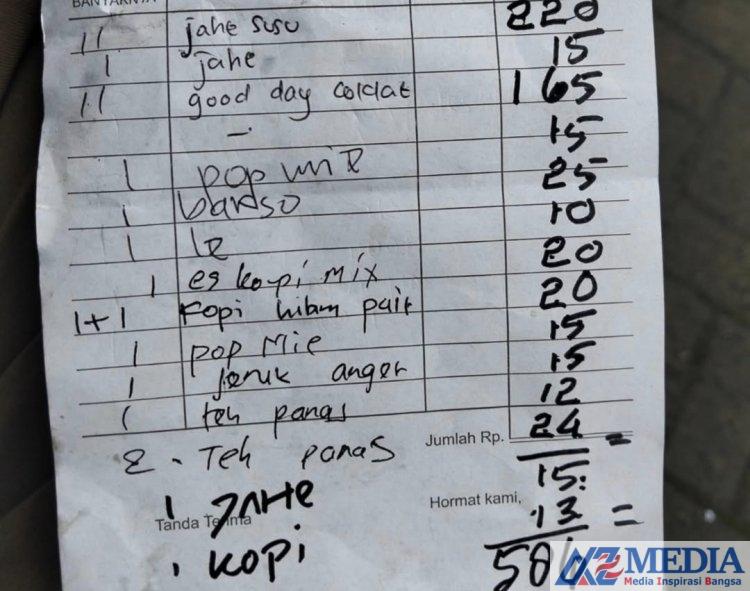 11 jahe susu 220
1 jahe 15
11 good day coklat 165
- 15
1 pop mie 25
1 bakso 10
1 Le 20
1 es kopi mix 20
1+1 kopi hitam pait 15
1 pop Mie 15
1 jeruk anget 12
1 teh panas 24 =
Jumlah Rp.
2 . Teh panas 15
1 JAHE 13 =
Hormat kami,
Tanda Terima
1 KOPI
MEDIA
Media Inspirasi Bangsa